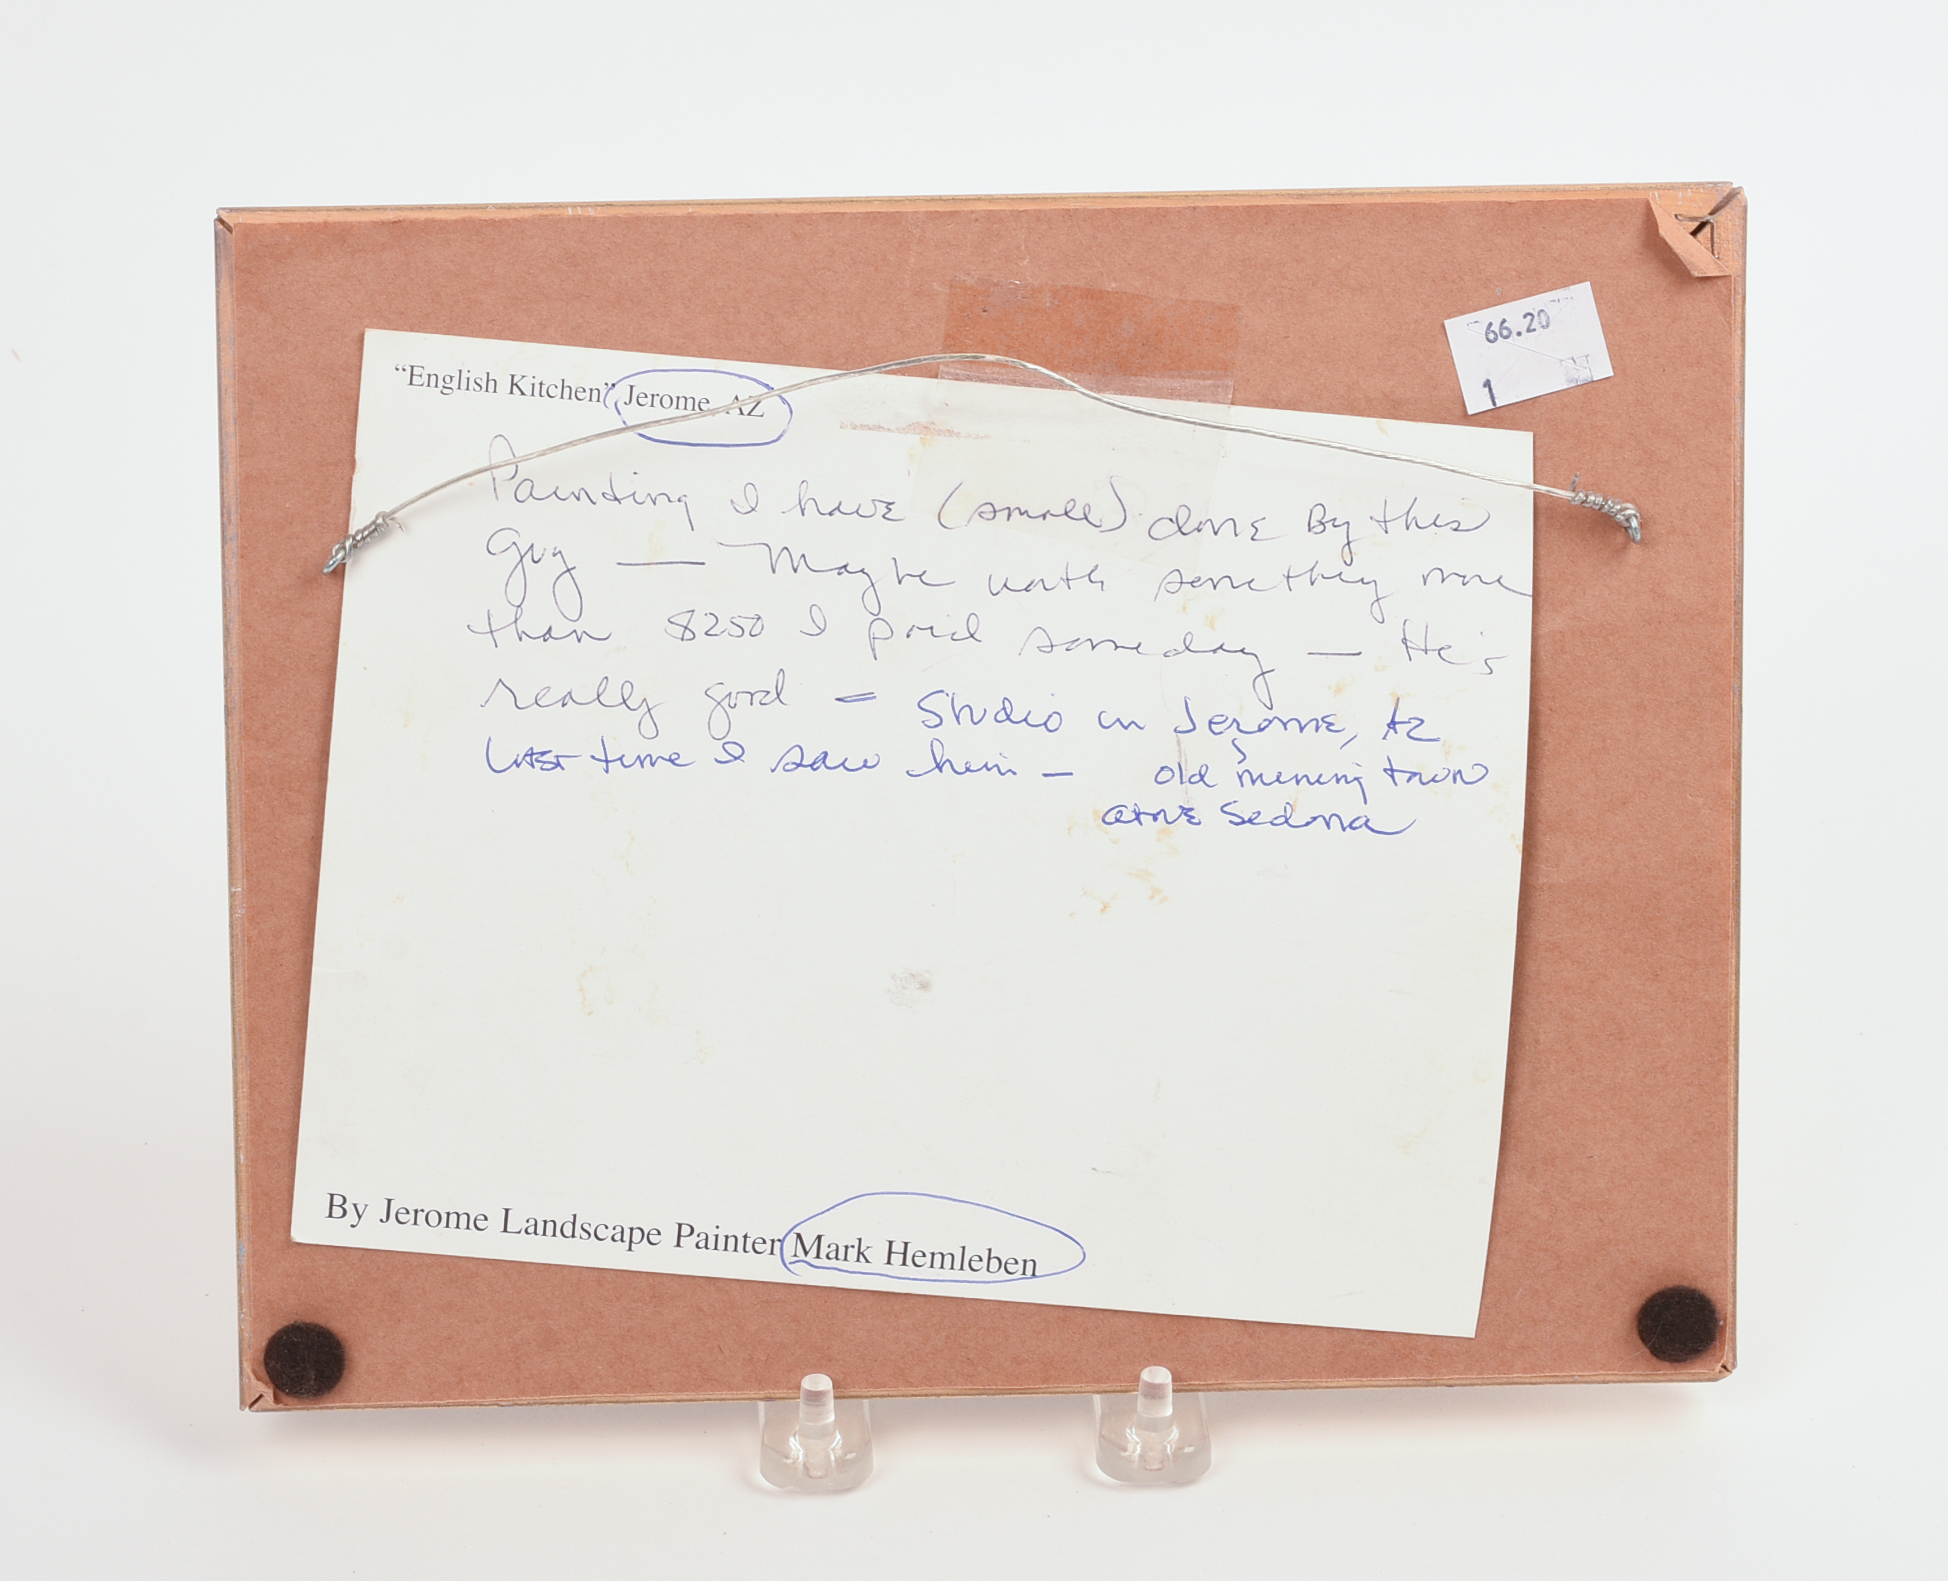 66.20
1
“English Kitchen” Jerome, AZ
Painting I have (small) done By this
Guy — Maybe worth something more
than $250 I paid someday — He's
really good = Studio in Jerome, AZ
Last time I saw him — old mining town
above Sedona
By Jerome Landscape Painter Mark Hemleben